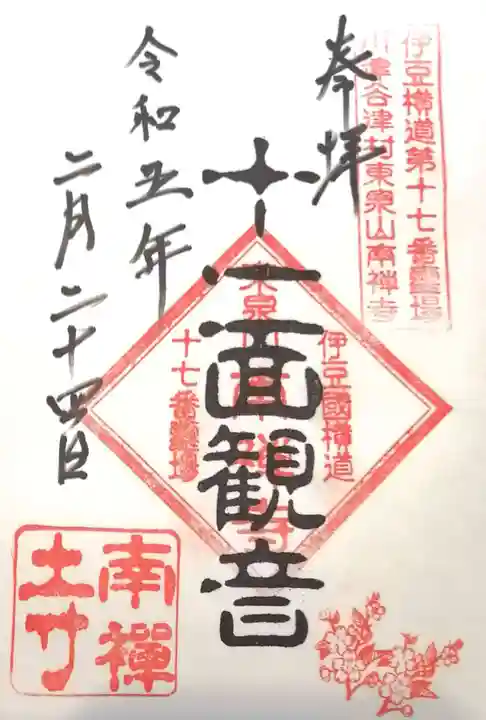 伊豆横道第十七番霊場
川津谷津村東泉山南禅寺
奉拝
十一面観音
伊豆國横道
東泉山南禅寺
十七番霊場
令和五年
二月二十四日
南禪
寺